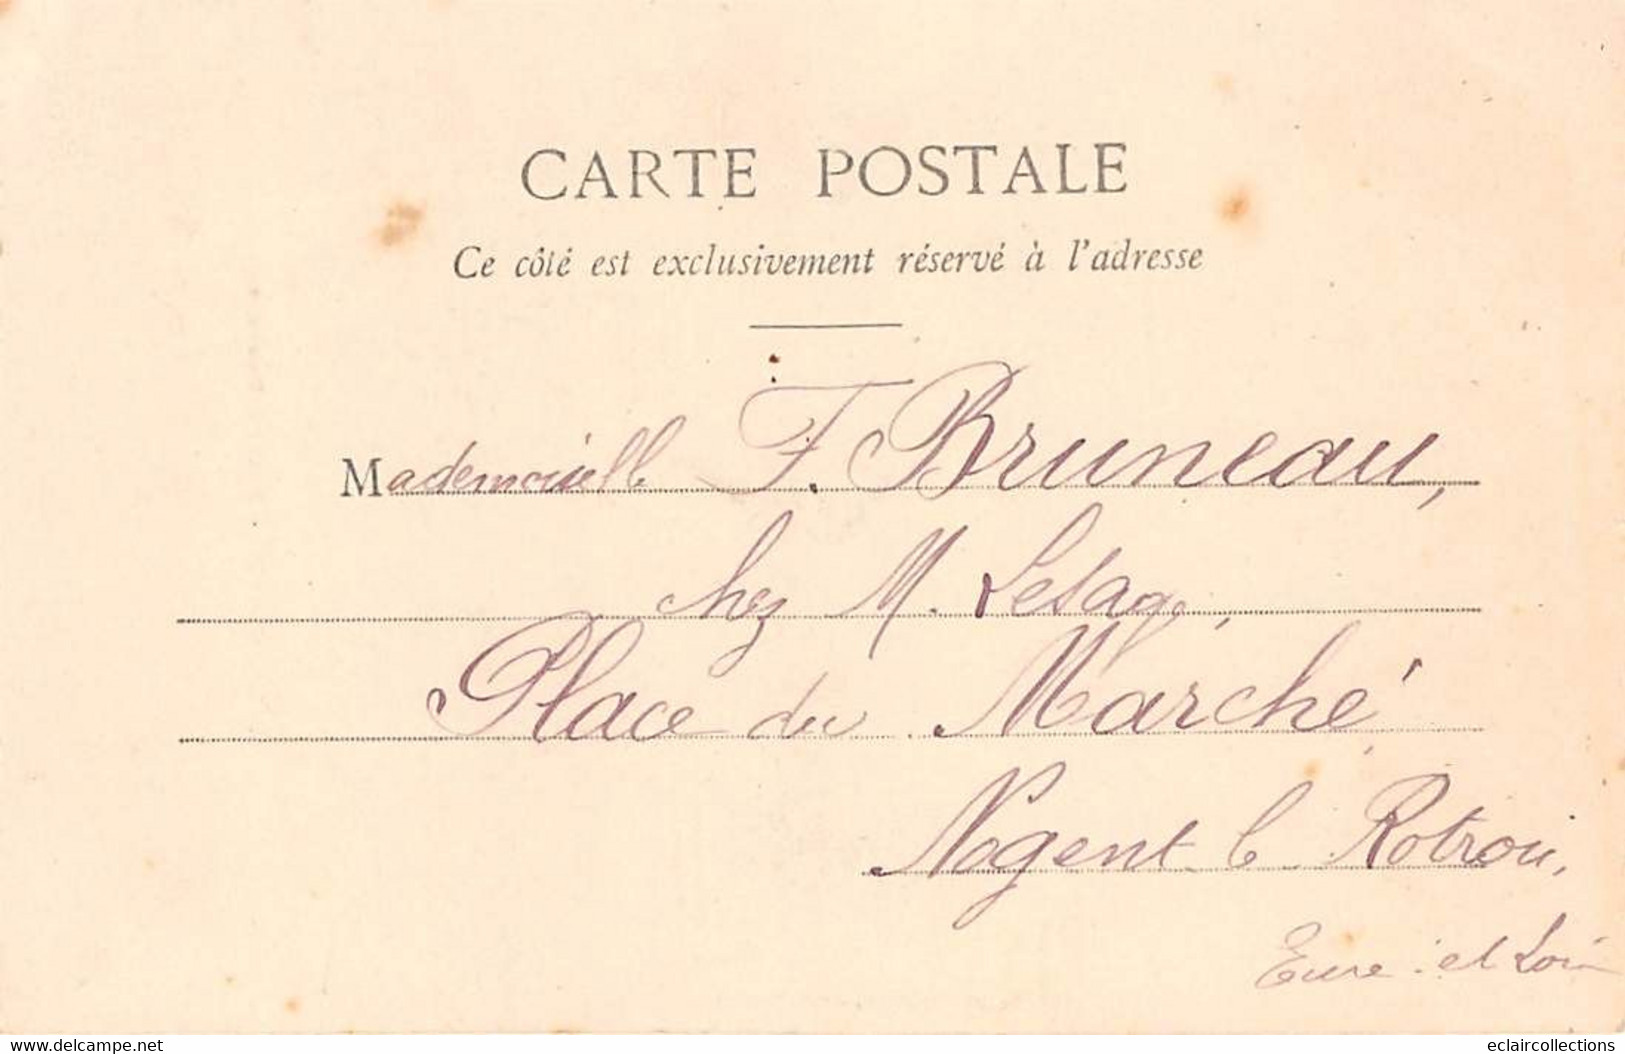 CARTE POSTALE
Ce côté est exclusivement réservé à l'adresse
Mademoiselle F. Bruneau,
chez M. Lesage,
Place du Marché
Nogent le Rotrou,
Eure et Loir
www.delcampe.net
eclaircollections